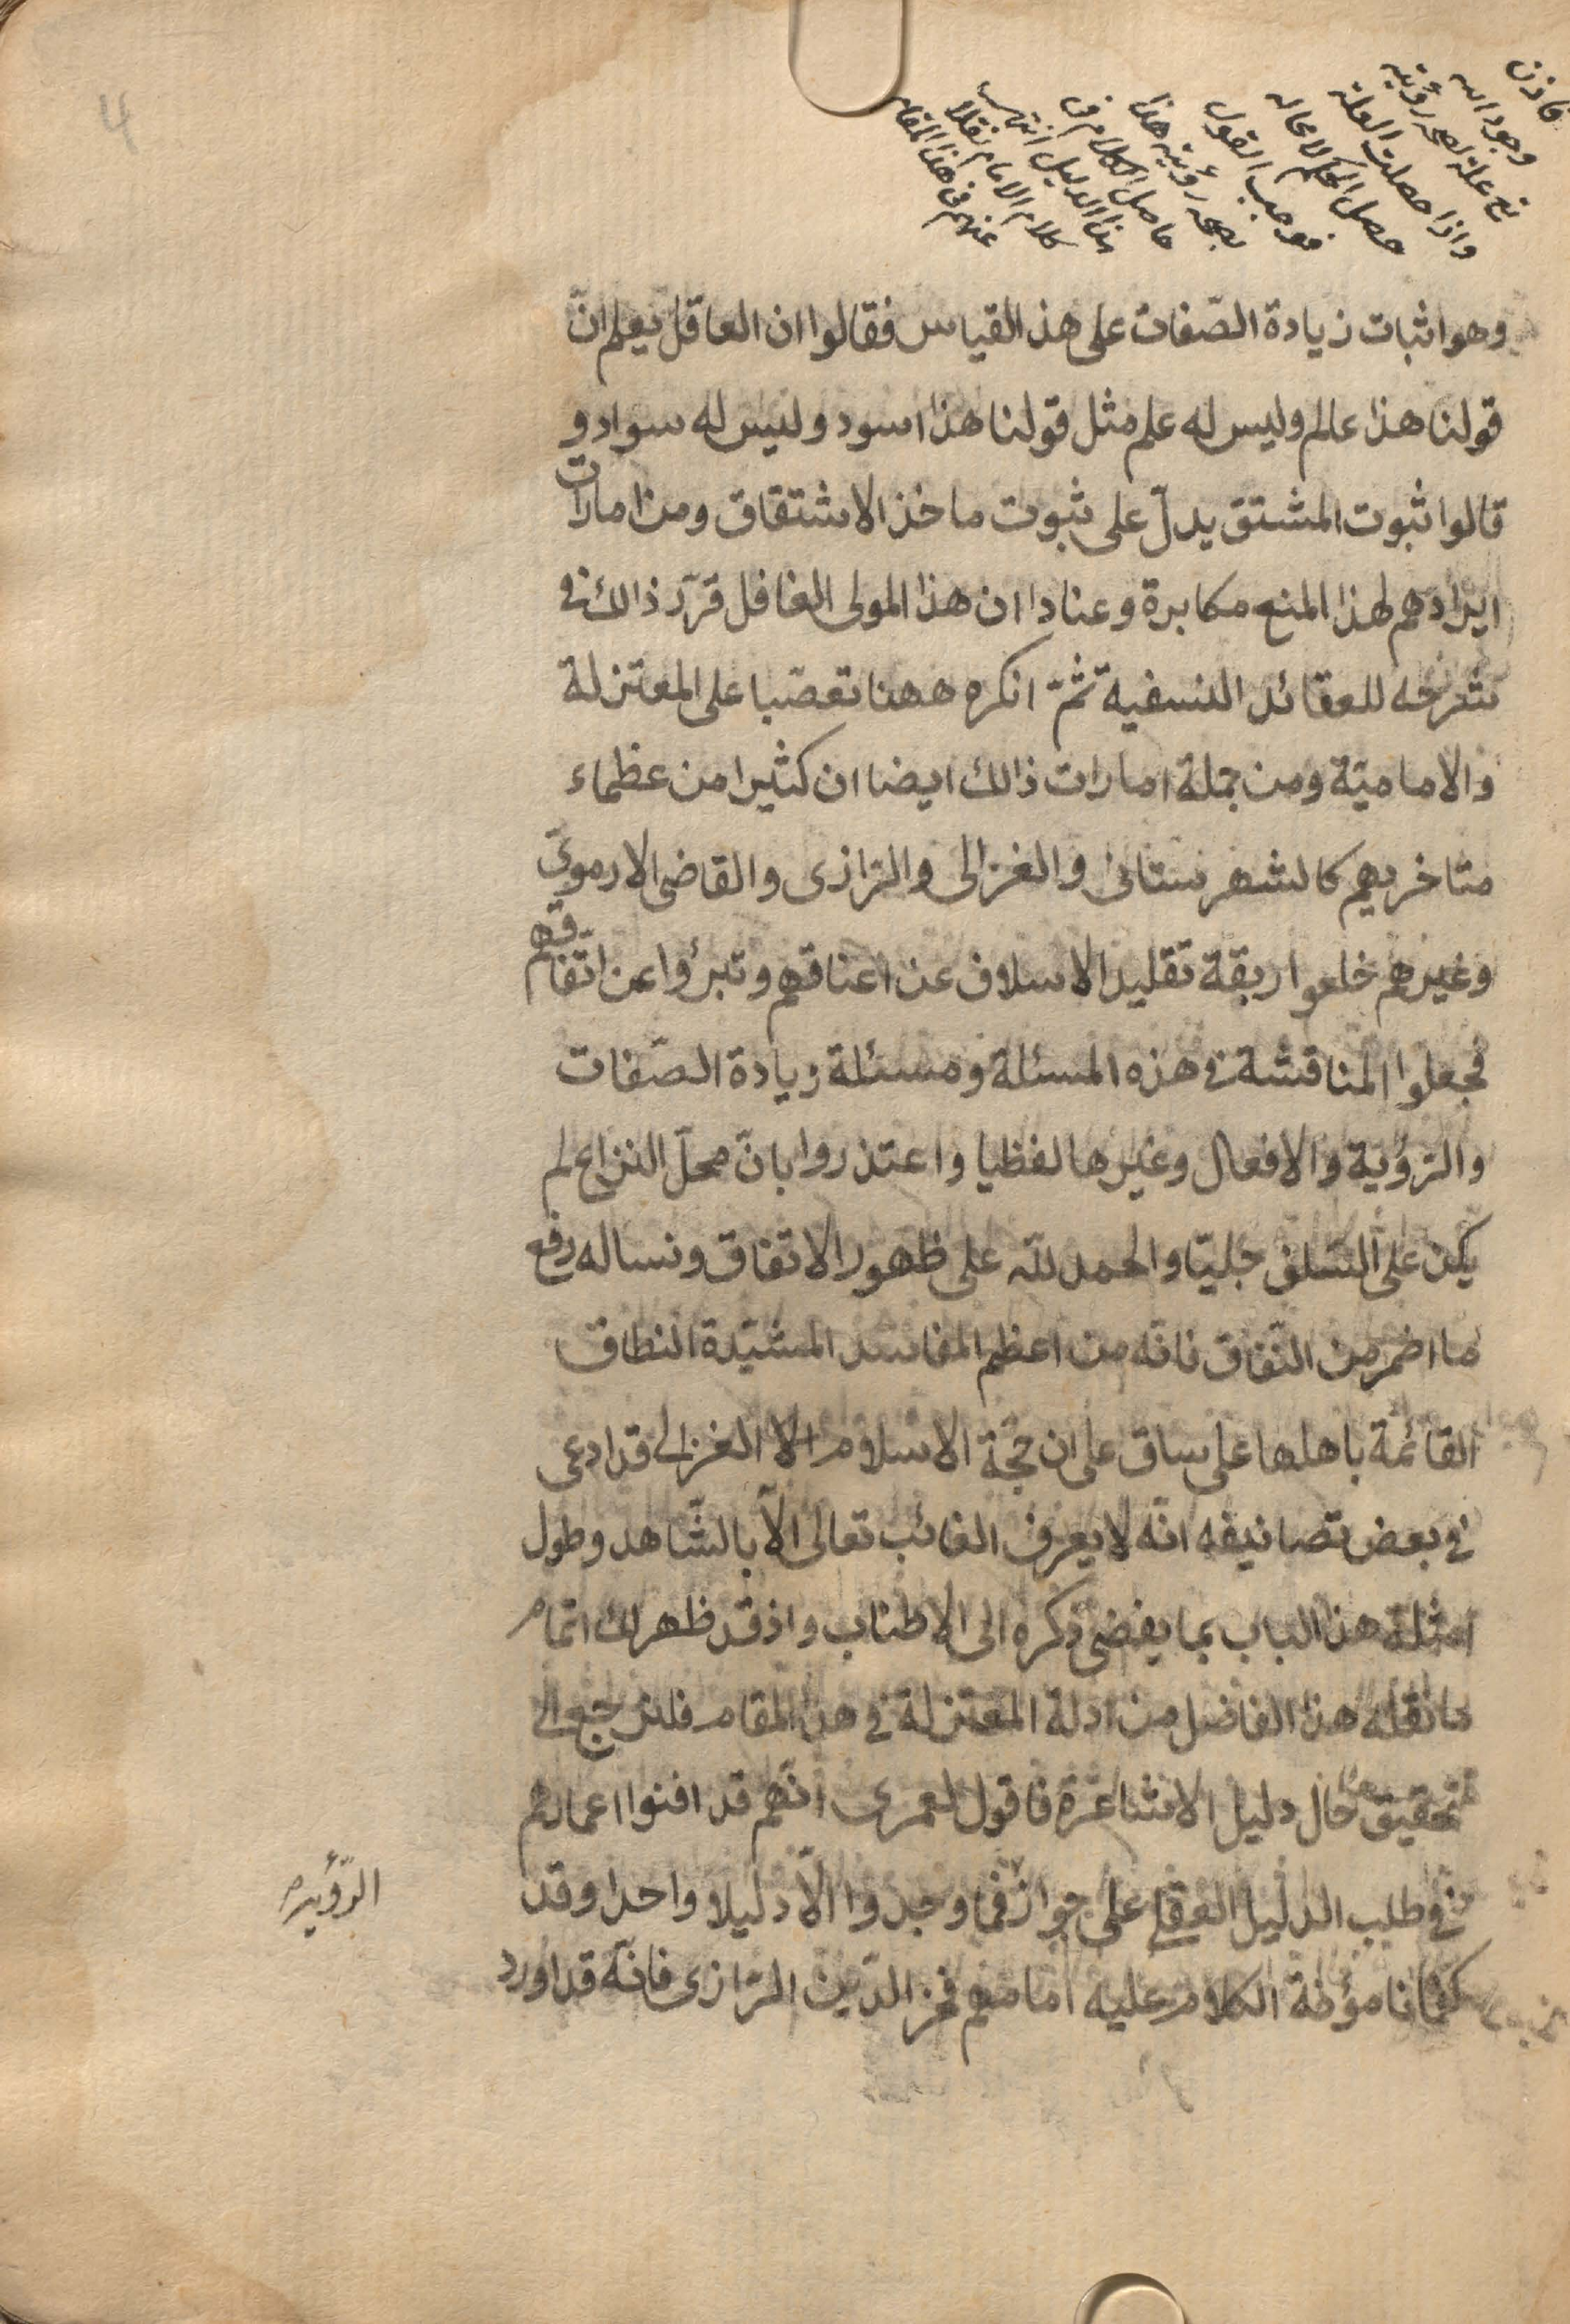 فاذن
وجود الله
تع علة لصحة رؤيته
واذا حصلت العلة
حصل الحكم لا محاله
فوجب القول
بصحة رؤيته هذا
حاصل الكلام في
هذا الدليل انتهى
كلام الامام نقلا
عنهم في هذا المقام
وهو اثبات زيادة الصّفات على هذ القياس فقالوا ان العاقل يعلم انّ
قولنا هذا عالم وليس له علم مثل قولنا هذا اسود وليس له سواد و
قالوا ثبوت المشتق يدلّ على ثبوت ماخذ الاشتقاق ومن امارات
ايرادهم لهذا المنع مكابرة وعنادا ان هذا المولى الغافل قرّر ذالك في
شرحه للعقائد النسفية ثمّ انكره ههنا تعصّبا على المعتزلة
والاماميّة ومن جملة امارات ذالك ايضا ان كثيرا من عظماء
متاخريهم كالشهرستانى والغزالى والرّازى والقاضى الارموىّ
وغيرهم خلعوا ربقة تقليد الاسلاف عن اعناقهم وتبرؤا عن اتّفاقهم
فجعلوا المناقشة في هذه المسئلة ومسئلة زيادة الصّفات
والرّؤية والافعال وغيرها لفظيا واعتذروا بانّ محلّ النزاع لم
يكن على السّلف جليّا والحمد للّه على ظهور الاتفاق ونساله رفع
ما اضمر من النّفاق فانّه من اعظم المفاسد المشيّدة النطاق
القائمة باهلها على ساق على ان حجّة الاسلام الغزالى قد ادعى
في بعض تصانيفه انّه لا يعرف الغائب تعالى الاّ بالشّاهد وطول
امثلة هذا الباب بما يفضى ذكره الى الاطناب واذ قد ظهر لك اتمام
ما نقله هذا الفاضل من ادلة المعتزلة في هذا المقام فلنرجع الى
تحقيق حال دليل الاشاعرة فاقول لعمرى انّهم قد افنوا اعمارهم
في طلب الدليل العقلي على جواز فما وجدوا الاّ دليلا واحدا وقد
الرّؤية
كفانا مؤنة الكلام عليه امامهم فخر الدّين الرّازى فانّه قد اورد